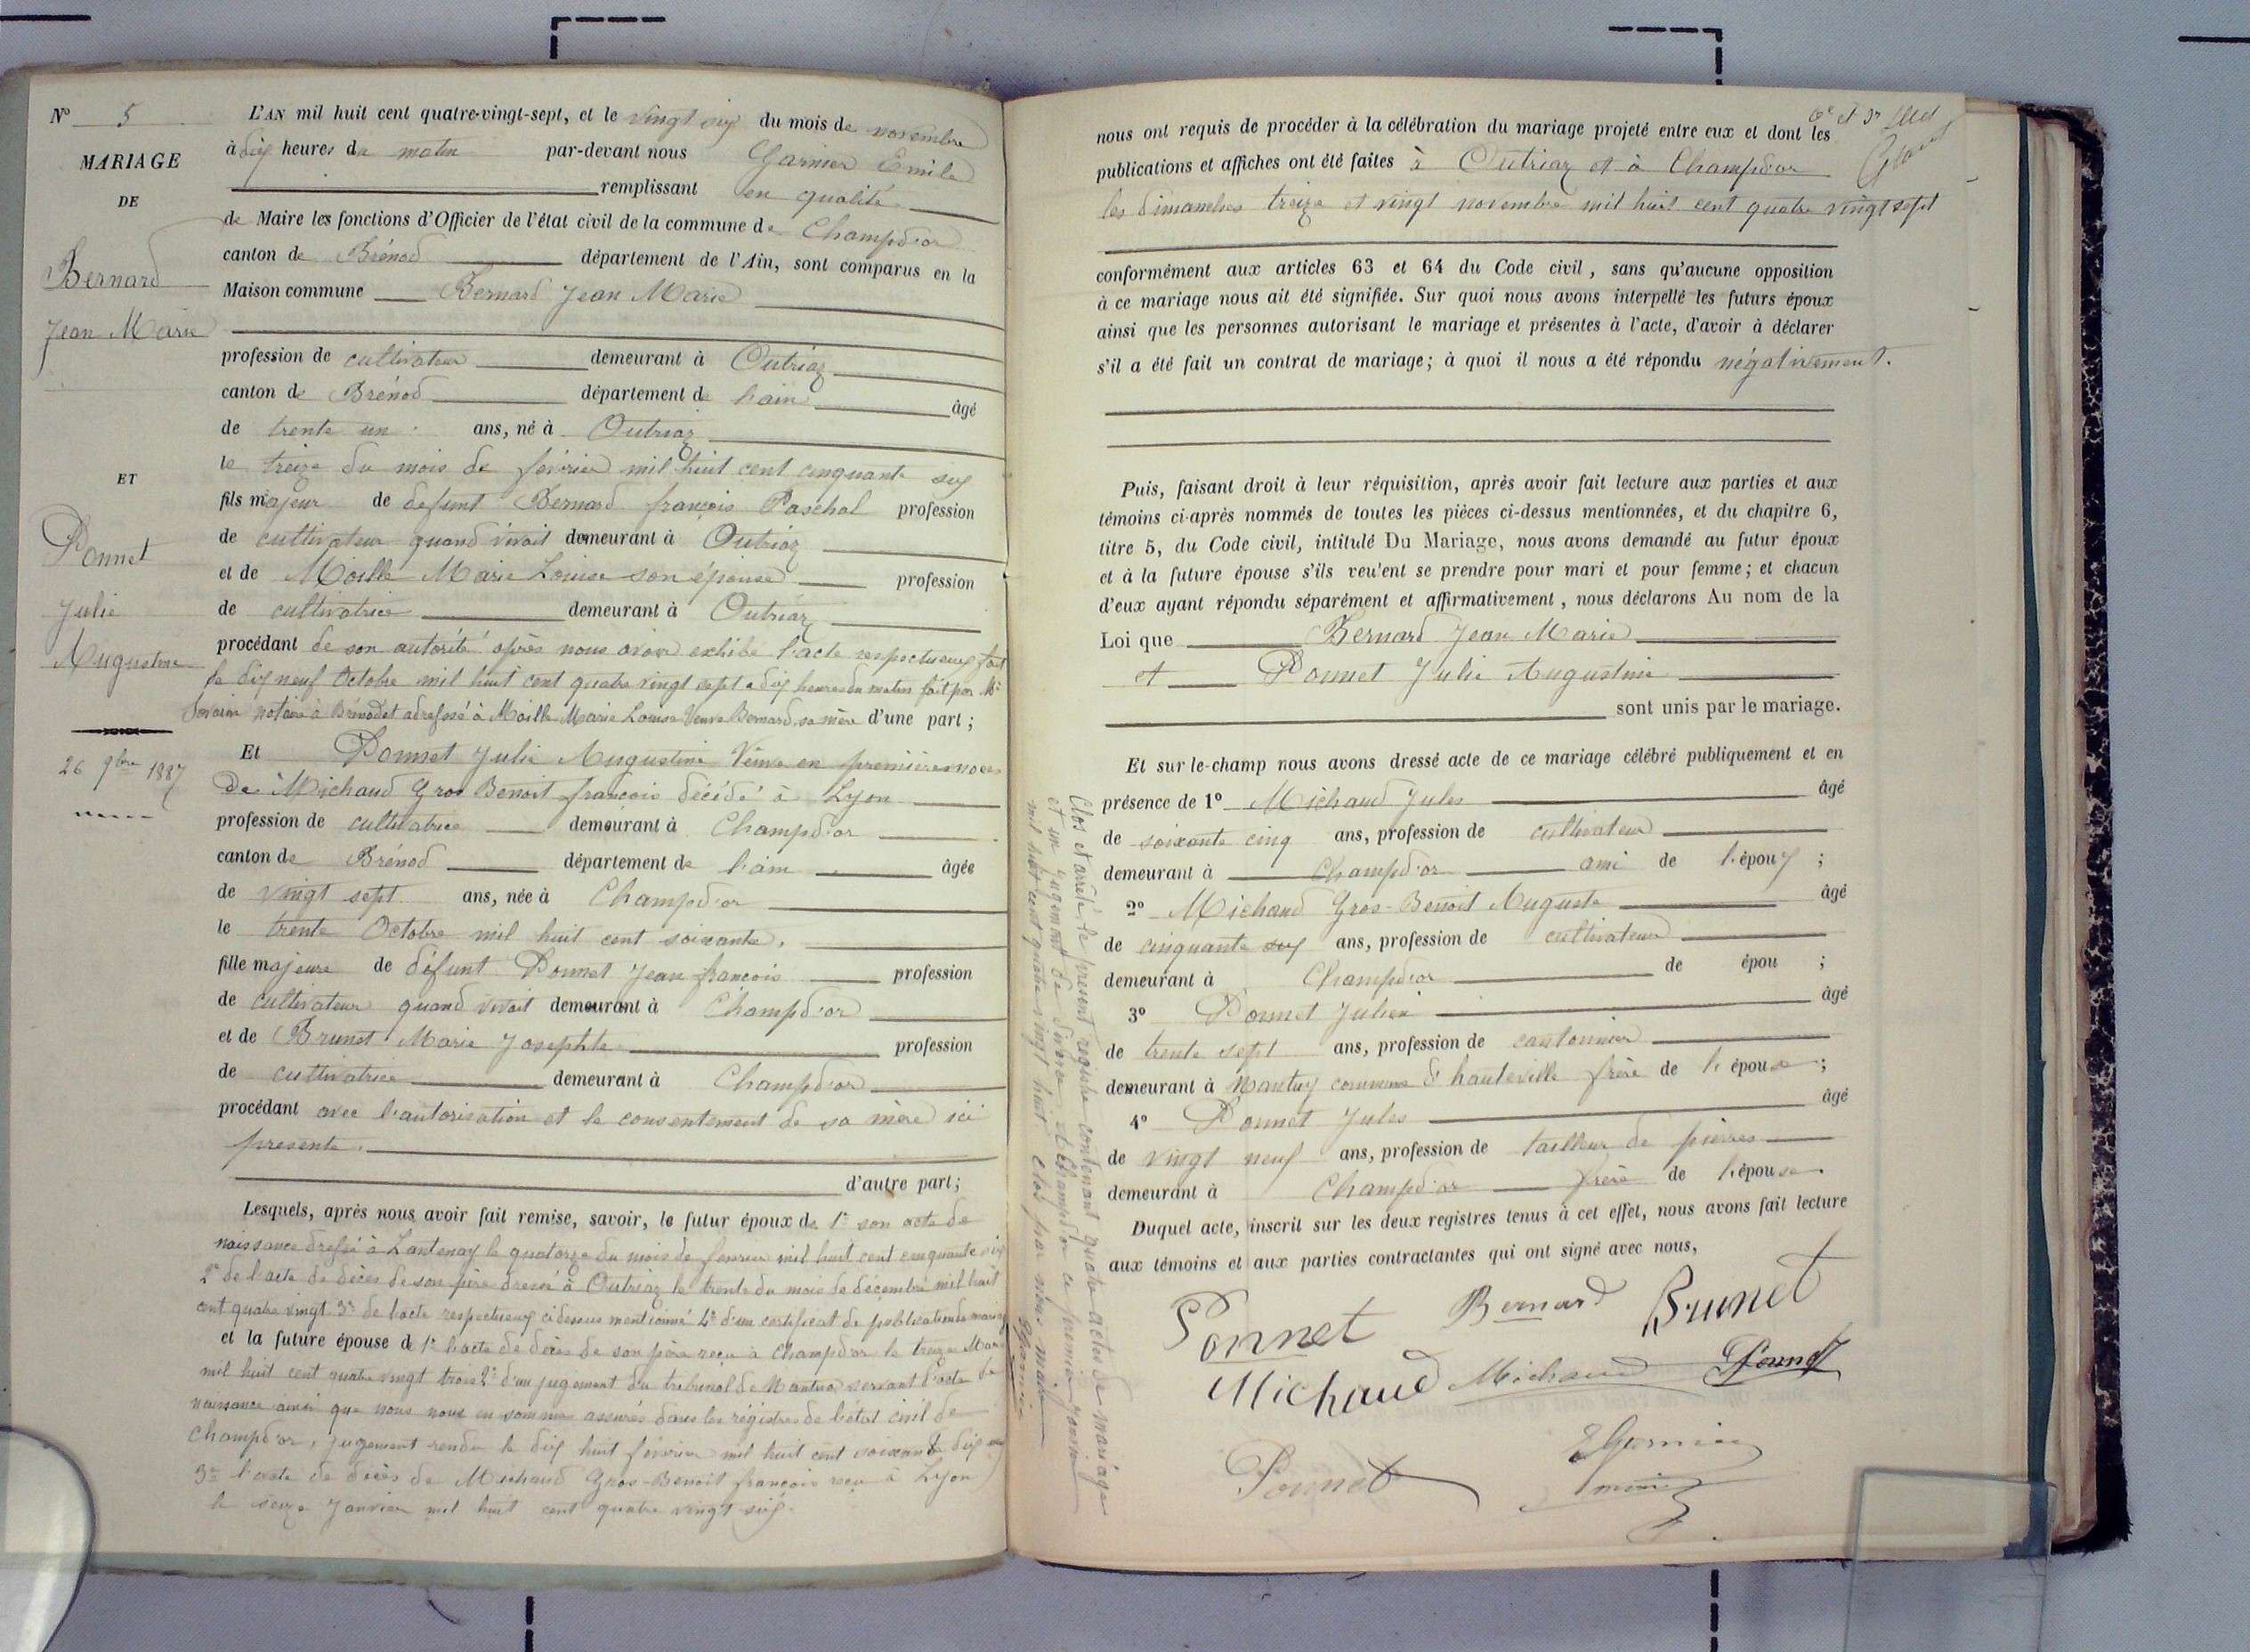 N° 5
MARIAGE
DE
Bernard
Jean Marie
ET
Ponnet
Julie
Augustine
26 9bre 1887
L'AN mil huit cent quatre-vingt-sept, et le vingt six du mois de novembre
à dix heures du matin par-devant nous Garnier Emile
remplissant en qualité
de Maire les fonctions d'Officier de l'état civil de la commune de Champdor
canton de Brénod département de l'Ain, sont comparus en la
Maison commune Bernard Jean Marie
profession de cultivateur demeurant à Outriaz
canton de Brénod département de l'ain âgé
de trente un ans, né à Outriaz
le treize du mois de février mil huit cent cinquante six
fils majeur de defunt Bernard françois Paschal profession
de cultivateur quand vivait demeurant à Outriaz
et de Moille Marie Louise son épouse profession
de cultivatrice demeurant à Outriaz
procédant de son autorité après nous avoir exhibé l'acte respectueux fait
le dix neuf Octobre mil huit cent quatre vingt sept à dix heures du matin fait par Me
notaire à Brénod et adressé à Moille Marie Louise Veuve Bernard sa mère d'une part;
Et Ponnet Julie Augustine Veuve en premières noces
De Michaud Gros Benoit françois décédé à Lyon
profession de cultivatrice demeurant à Champd'or
canton de Brénod département de l'ain âgée
de vingt sept ans, née à Champd'or
le trente Octobre mil huit cent soixante,
fille majeure de défunt Ponnet Jean françois profession
de cultivateur quand vivait demeurant à Champd'or
et de Brunet Marie Josephte profession
de cultivatrice demeurant à Champd'or
procédant avec l'autorisation et le consentement de sa mère ici
presente.
d'autre part;
Lesquels, après nous avoir fait remise, savoir, le futur époux de 1° son acte de
naissance dressé à Lantenay le quatorze du mois de fevrier mil huit cent cinquante six
2° de l'acte de décès de son père dressé à Outriaz le trente du mois de décembre mil huit
cent quatre vingt 3° de l'acte respectueux cidessus mentionné 4° d'un certificat de publication de mariage
et la future épouse de 1° l'acte de décès de son père reçu à Champdor le treize Mars
mil huit cent quatre vingt trois 2° d'un jugement du tribunal de Nantua servant d'acte de
naissance ainsi que nous nous en sommes assurés dans les régistres de l'état civil de
Champd'or, jugement rendu le dix huit février mil huit cent soixante dix
3° l'acte de décès de Michaud Gros-Benoit françois reçu à Lyon
le seize Janvier mil huit cent quatre vingt-six.
nous ont requis de procéder à la célébration du mariage projeté entre eux et dont les
publications et affiches ont été faites à Outriaz et à Champd'or
les dimanches treize et vingt novembre mil huit cent quatre vingt sept
conformément aux articles 63 et 64 du Code civil, sans qu'aucune opposition
à ce mariage nous ait été signifiée. Sur quoi nous avons interpellé les futurs époux
ainsi que les personnes autorisant le mariage et présentes à l'acte, d'avoir à déclarer
s'il a été fait un contrat de mariage; à quoi il nous a été répondu négativement.
Puis, faisant droit à leur réquisition, après avoir fait lecture aux parties et aux
témoins ci-après nommés de toutes les pièces ci-dessus mentionnées, et du chapitre 6,
titre 5, du Code civil, intitulé Du Mariage, nous avons demandé au futur époux
et à la future épouse s'ils veu'ent se prendre pour mari et pour femme; et chacun
d'eux ayant répondu séparément et affirmativement, nous déclarons Au nom de la
Loi que Bernard Jean Marie
et Ponnet Julie Augustine
sont unis par le mariage.
Et sur-le-champ nous avons dressé acte de ce mariage célébré publiquement et en
présence de 1° Michaud Jules âgé
de soixante cinq ans, profession de cultivateur
demeurant à Champd'or ami de l'époux ;
2° Michaud Gros-Benoit Auguste âgé
de cinquante six ans, profession de cultivateur
demeurant à Champd'or de épou ;
3° Ponnet Julien âgé
de trente sept ans, profession de cantonnier
demeurant à commune d'hauteville frère de l'épouse ;
4° Ponnet Jules âgé
de vingt neuf ans, profession de tailleur de pierres
demeurant à Champd'or frère de l'épouse.
Duquel acte, inscrit sur les deux registres tenus à cet effet, nous avons fait lecture
aux témoins et aux parties contractantes qui ont signé avec nous,
Ponnet Bernard Brunet
Michaud Michaud Ponnet
Ponnet EGarnier
maire
Clos et arrêté le présent registre contenant quatre actes de mariage
et un jugement de divorce à Champdor ce premier janvier
mil huit cent quatre vingt huit clos par nous maire
EGarnier